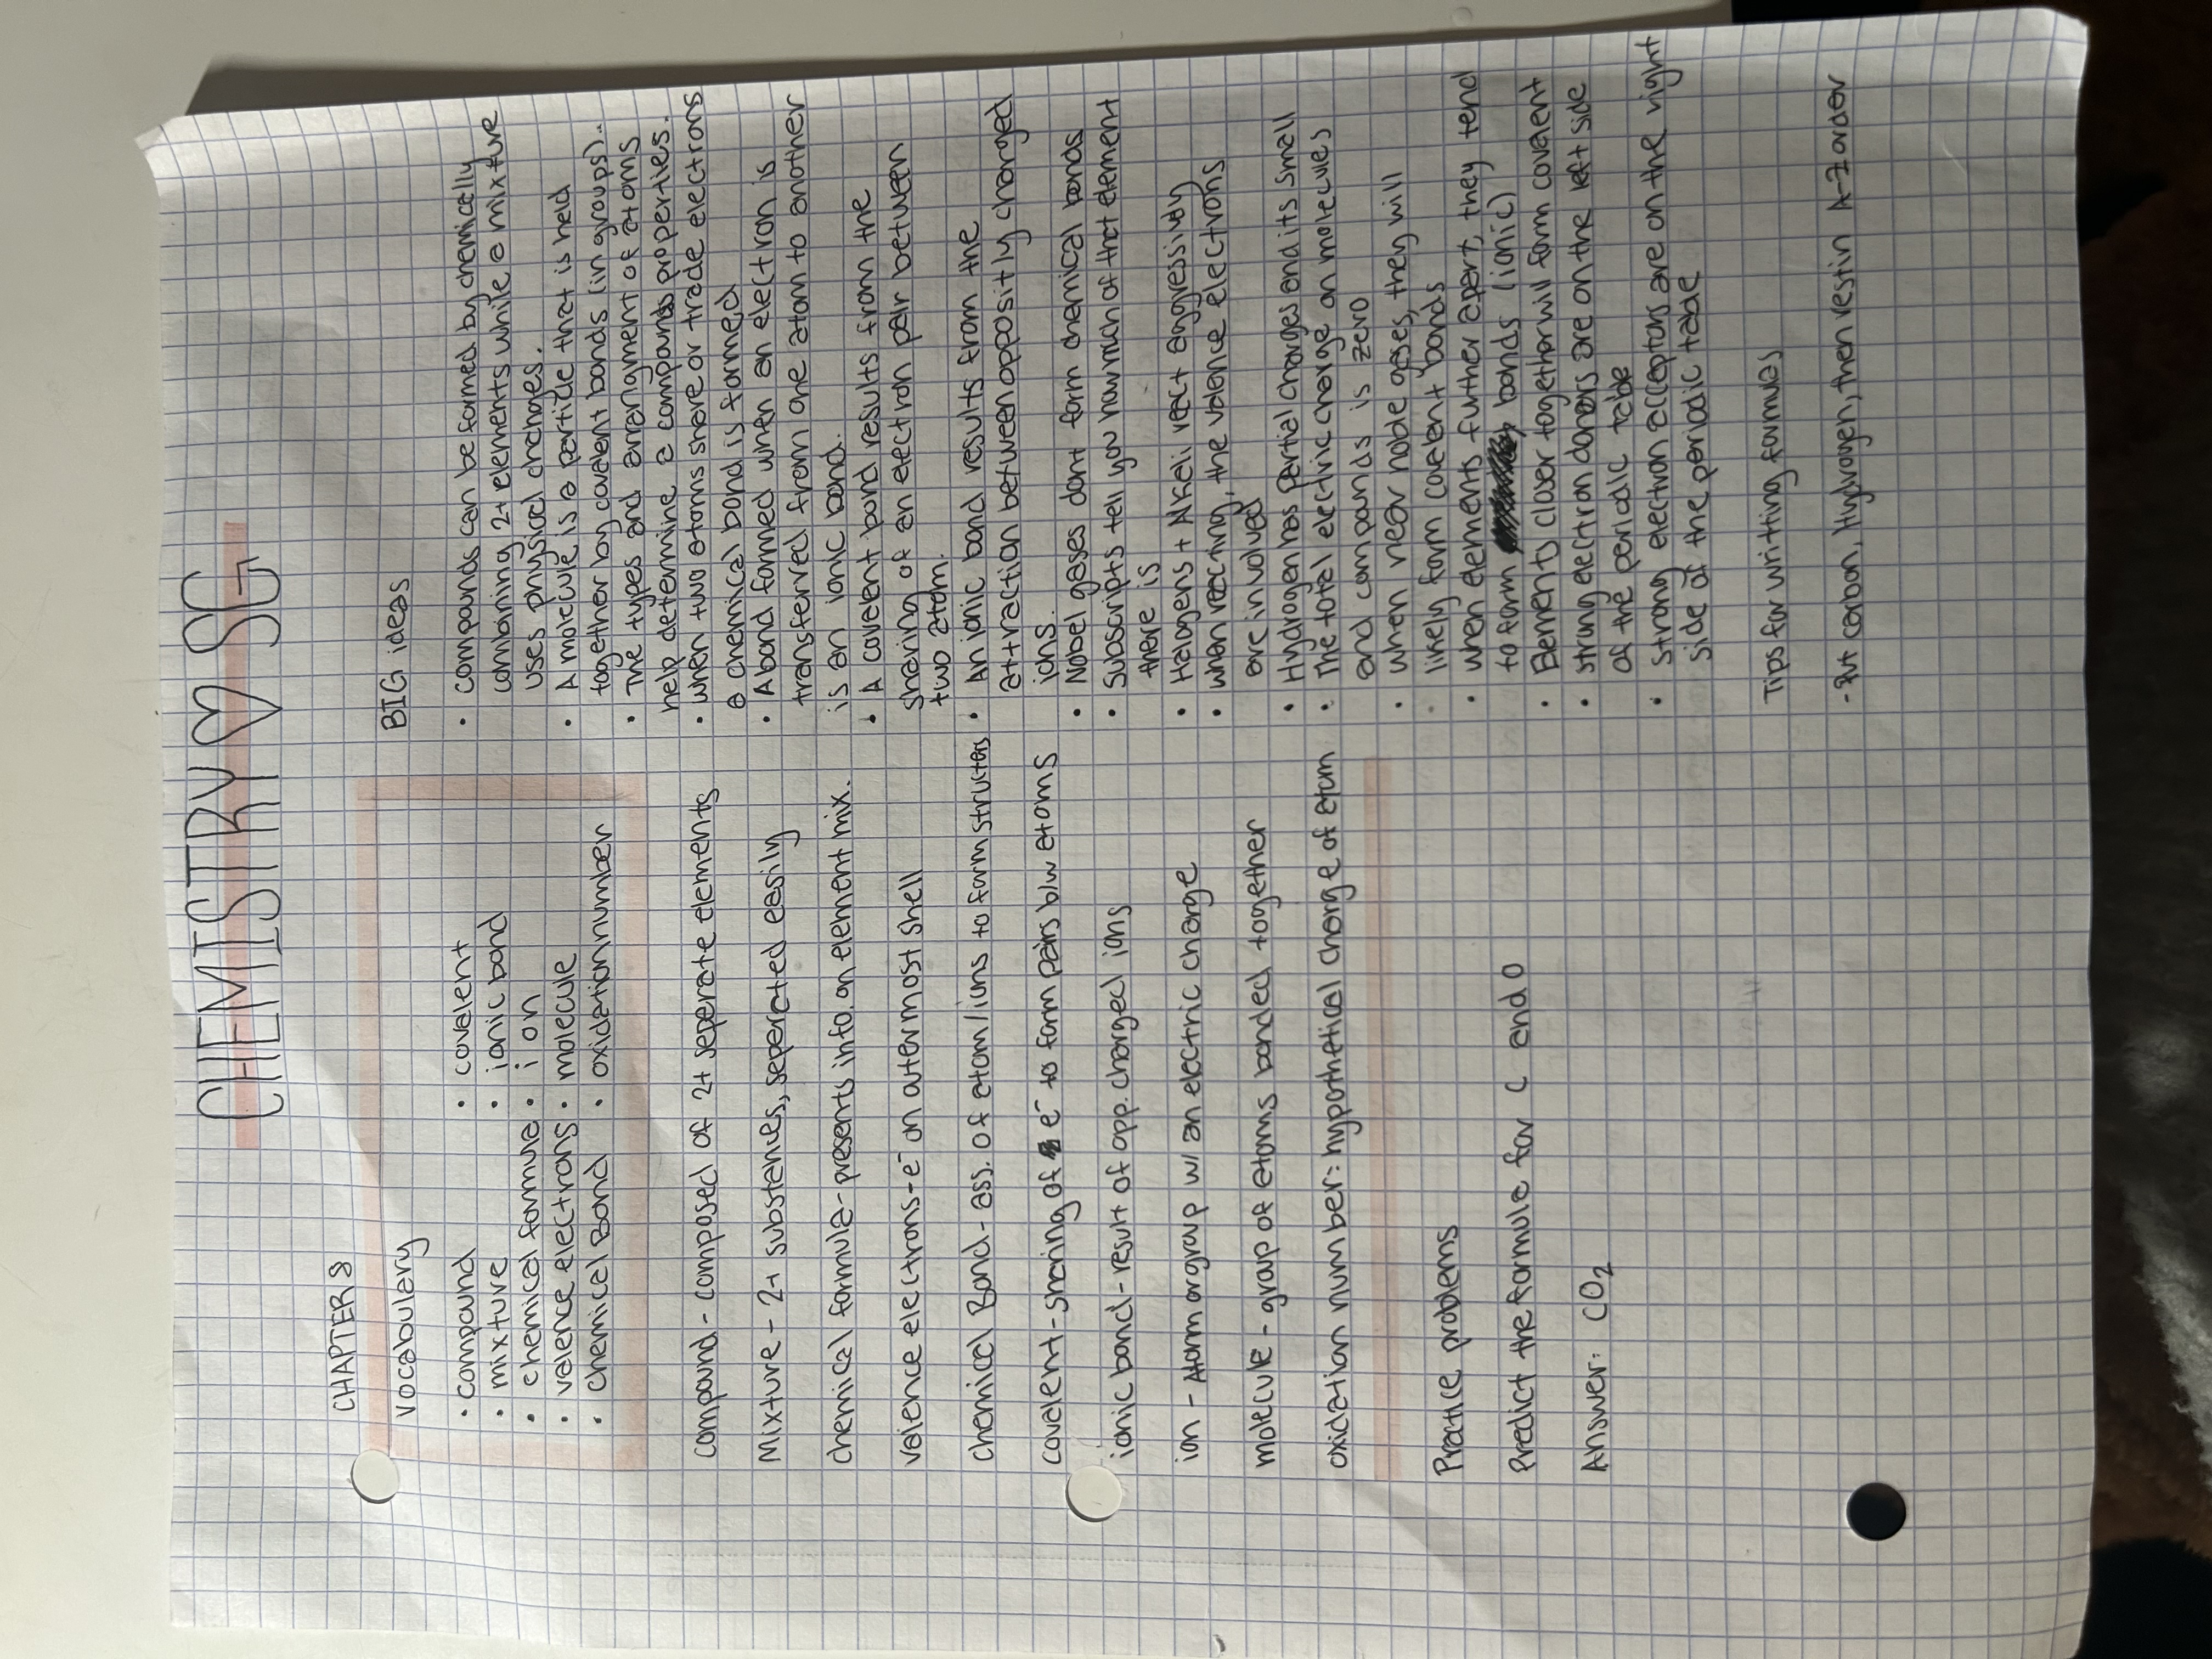 CHEMISTRY ♡ SG
CHAPTER 8
Vocabulary
• compound
• mixture
• chemical formula
• valence electrons
• Chemical Bond
• covalent
• ionic bond
• ion
• molecule
• oxidation number
compound - composed of 2+ seperate elements
Mixture - 2+ substances, seperated easily
chemical formula - presents info. on element mix.
valence electrons - e⁻ on outermost shell
chemical Bond - ass. of atom/ions to form structers
covalent - sharing of e⁻ to form pairs b/w atoms
ionic bond - result of opp. charged ions
ion - Atom or group w/ an electric charge
molecule - group of atoms bonded together
oxidation number: hypothetical charge of atom
Practice problems
Predict the formula for C and O
Answer: CO₂
BIG ideas
• compounds can be formed by chemically
combining 2+ elements while a mixture
uses physical changes.
• A molecule is a particle that is held
together by covalent bonds (in groups)..
• The types and arrangment of atoms
help determine a compounds properties.
• when two atoms share or trade electrons
a chemical bond is formed
• A bond formed when an electron is
transferred from one atom to another
is an ionic bond.
• A covalent bond results from the
sharing of an electron pair between
two atom.
• An ionic bond results from the
attraction between oppositly charged
ions.
• Nobel gases dont form chemical bonds
• Subscripts tell you how much of that element
there is
• Halogens + Alkali react aggressivdy
• when reacting, the valence electrons
are involved
• Hydrogen has partial charges and its small
• The total electric charge on molecules
and compounds is zero
• when near noble gases, they will
likely form covalent bonds
• when elements further apart, they tend
to form bonds (ionic)
• Elements closer together will form covalent
• strong electron donors are on the left side
of the periodic table
• strong electron acceptors are on the right
side of the periodic table
Tips for writting formulas
- Put carbon, Hydrogen, then rest in A-Z order